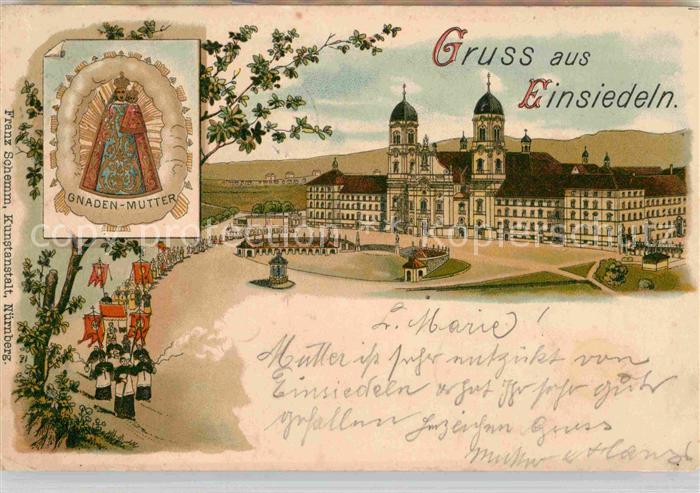 Gruss aus
Einsiedeln.
GNADEN-MUTTER
Franz Schemm, Kunstanstalt, Nürnberg.
copyright kunstundschutz
L. Marie!
Mutter ist sehr entzückt von
Einsiedeln es hat Ihr sehr gut
gefallen herzlichen Gruss
Mutter & Hans